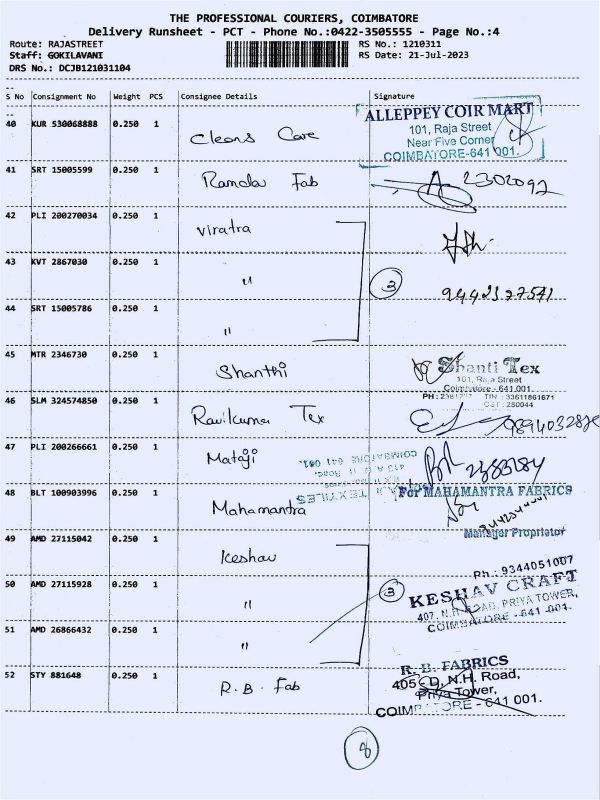 THE PROFESSIONAL COURIERS, COIMBATORE
Delivery Runsheet - PCT - Phone No.:0422-3505555 - Page No.:4
Route: RAJASTREET
Staff: GOKILAVANI
DRS No.: DCJB121031104
RS No.: 1210311
RS Date: 21-Jul-2023
S No Consignment No Weight PCS Consignee Details Signature
40 KUR 530068888 0.250 1 Cleans Care
ALLEPPEY COIR MART
101, Raja Street
Near Five Corner
COIMBATORE-641 001.
41 SRT 15005599 0.250 1 Randa Fab 2302092
42 PLI 200270034 0.250 1 Viratra
43 KVT 2867030 0.250 1 " 3
44 SRT 15005786 0.250 1 "
45 MTR 2346730 0.250 1 Shanthi
Shanti Tex
101, Raja Street
Coimbatore - 641 001.
PH : TIN : 33611861671
CST : 280044
46 SLM 324574850 0.250 1 Ravikumar Tex
47 PLI 200266661 0.250 1 Mataji 2383284
COIMBATORE 641 001.
TEXTILES
48 BLT 100903996 0.250 1 Mahamantra
For MAHAMANTRA FABRICS
Manager Proprietor
49 AMD 27115042 0.250 1 Keshav
Ph : 9344051007
50 AMD 27115928 0.250 1 " 3
KESHAV CRAFT
407, N.H. ROAD, PRIYA TOWER,
COIMBATORE - 641 001.
51 AMD 26866432 0.250 1 "
52 STY 881648 0.250 1 R.B. Fab
R. B. FABRICS
405 - D, N.H. Road,
Priya Tower,
COIMBATORE - 641 001.
8